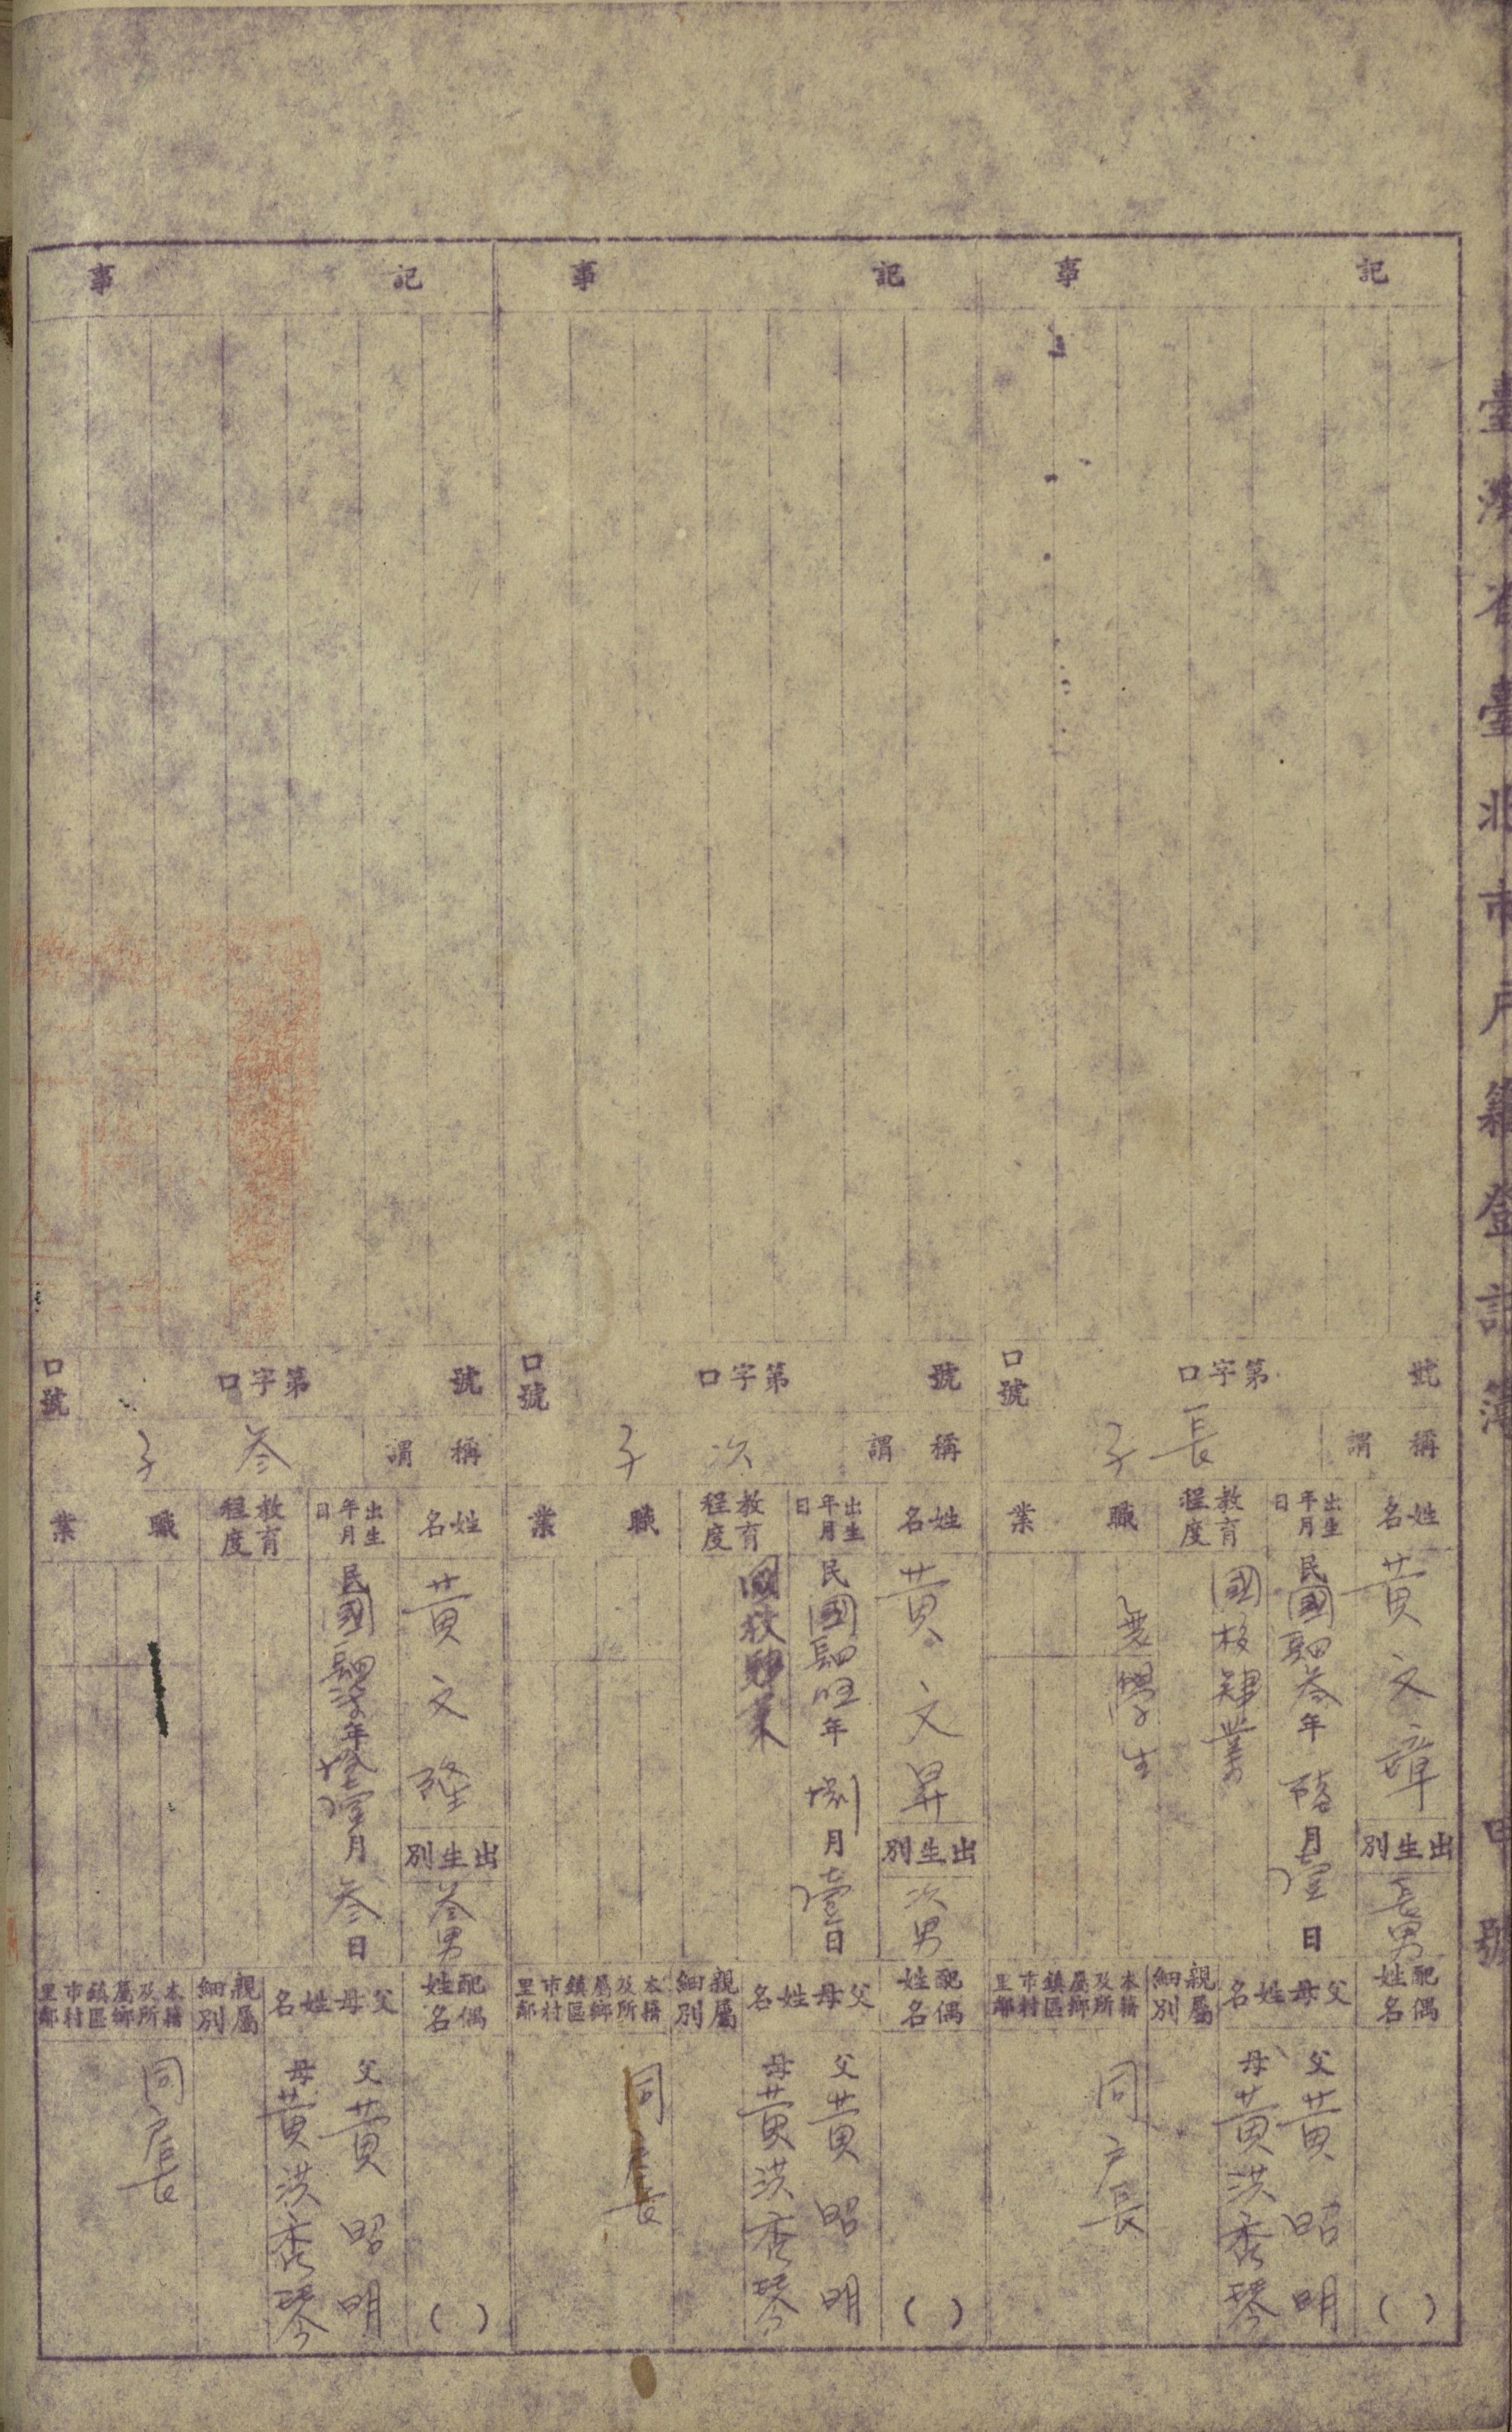 臺灣省臺北市戶籍登記簿 甲號
記事
口號
口字第 號
稱謂 長子
姓名 黃文璋
出生別 長男
出生年月日 民國 叁年 陸月壹日
教育程度 國校肄業
職業 學生
配偶姓名 ( )
父母姓名
父 黃昭明
母 黃洪秀琴
親屬細別
本籍及所屬鄉鎮區市村里鄰 同戶長
記事
口號
口字第 號
稱謂 次子
姓名 黃文昇
出生別 次男
出生年月日 民國 年 捌月壹日
教育程度 國校肄業
職業
配偶姓名 ( )
父母姓名
父 黃昭明
母 黃洪秀琴
親屬細別
本籍及所屬鄉鎮區市村里鄰 同戶長
記事
口號
口字第 號
稱謂 叁子
姓名 黃文隆
出生別 叁男
出生年月日 民國 年 拾壹月叁日
教育程度
職業
配偶姓名 ( )
父母姓名
父 黃昭明
母 黃洪秀琴
親屬細別
本籍及所屬鄉鎮區市村里鄰 同戶長